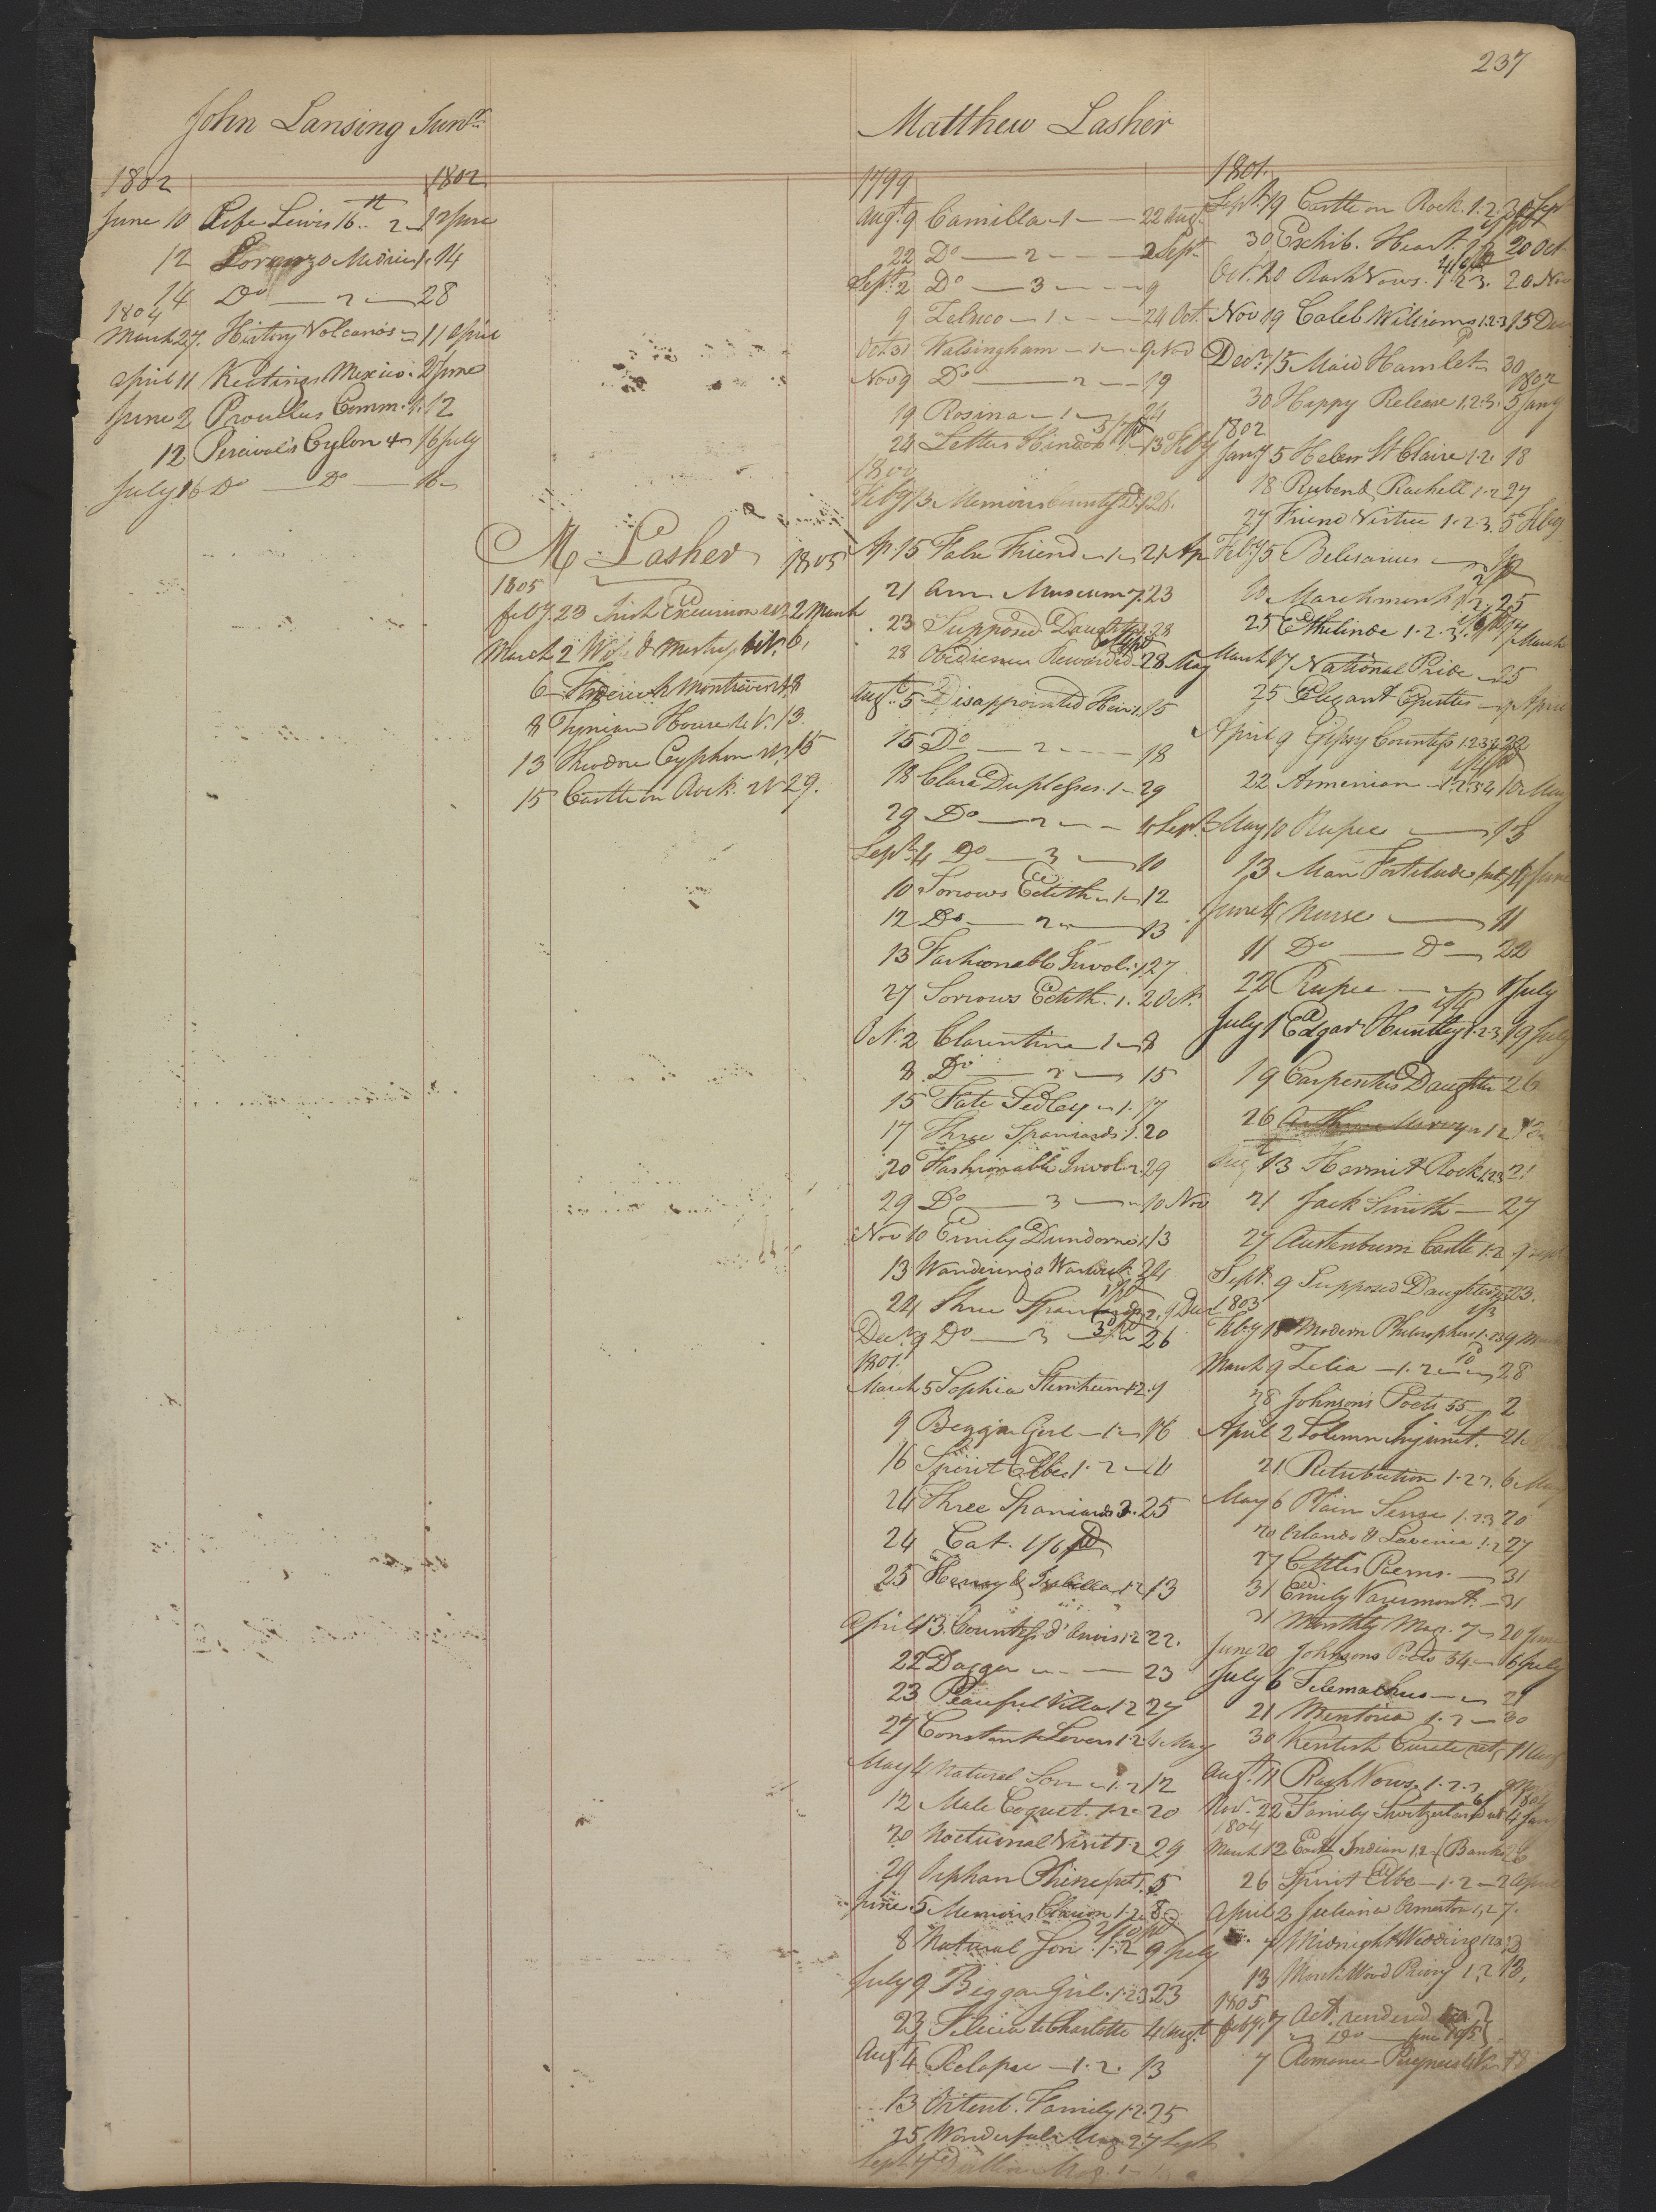 237
John Lansing Junr
1802 1802
June 10 Life Lewis 16th 2 12 June
12 Lorenzo Medicis 1 14
14 Do 2 28
1804
March 27 History Volcanos 11 April
April 11 Keatings Mexico 2 June
June 2 Proudlus Comm. 1 12
12 Percival's Cylon 4 16 July
July 16 Do Do 16
M Lasher 1805
1805
feby 23 Irish Excursion 2 March
March 2 Wife & Mistress 6
6 Montrevers 8
8 Tynian House 13
13 Theodore Cyphon 15
15 Castle on Rock 29.
Matthew Lasher
1799
Augt 9 Camilla 1 22 Augt
22 Do 2 2 Sept
Sept 2 Do 3 9
9 Zeluco 1 24 Oct
Oct 31 Walsingham 1 9 Nov
Nov 9 Do 2 19
19 Rosina 1 24
24 Letters Hindoo 13 Feby
1800
Feby 13 Memoirs County D 1 26.
Ap. 15 False Friend 1 21 Ap
21 Am. Museum 7. 23
23 Supposed Daughter 28
28 Obedience Rewarded 28 May
Augt 5 Disappointed Heir 1 15
15 Do 2 18
18 Clara Duplesses. 1 29
29 Do 2 4 Sept
Sept 4 Do 3 10
10 Sorrows Edith 1 12
12 Do 2 13
13 Fashionable Invol. 1 27
27 Sorrows Edith. 1. 2 Oct.
Oct. 2 Clarentine 1 8
8 Do 2 15
15 Fate Sedley 1. 17
17 Three Spaniards 1. 20
20 Fashionable Invol 2. 29
29 Do 3 10 Nov
Nov 10 Emily Dundorne 1 13
13 Wanderings Warwick 24
24 Three Spaniards 2. 9 Decr
Decr 9 Do 3 26
1801.
March 5 Sophia Sternheim 1 2. 9
9 Beggar Girl 1 16
16 Spirit Elbe 1. 2 4
24 Three Spaniards 3. 25
24 Cat. 1/6 pd
25 Henry & Isabella 1 2 13
April 13 Countess d'Anois 1 2 22.
22 Dagger 23
23 Peaceful Villa 1 2 27
27 Constant Lovers 1 2 4 May
May 4 Natural Son 1. 2 12
12 Male Coquet. 1. 2 20
20 Nocturnal Visit 1. 2 29
29 Orphan Rhine 5
June 5 Memoirs 1. 2 8
8 Natural Son 1. 2 9 July
July 9 Beggar Girl. 1. 2 3 23
23 Felicia to Charlotte 4 Augt
Augt 4 Relapse 1. 2. 13
13 Ortenb. Family 1 2. 25
25 Wonderful Mag 2 7 Sept
Sept 7 Dublin Mag. 1
1801.
Sept 19 Castle on Rock. 1. 2. 3 30 Sept
30 Exhib. Heart. 1 2 20 Oct
Oct. 20 Rash Vows. 1 2 3. 20 Nov
Nov 19 Caleb Williams 1 2 3 15 Dec
Decr 15 Maid Hamlet 30
1802
30 Happy Release 1. 2. 3. 5 Jany
1802
Jany 5 Helen St Claire 1. 2 18
18 Ruben & Rachell 1. 2 27
27 Friend Virtue 1. 2. 3. 5 Feby
Feby 5 Belesarius 10
10 Marchmont 1. 2 25
25 Ethelinde 1. 2. 3. 17 March
March 17 National Pride 25
25 Elegant Epistles 9 April
April 9 Gipsy Countess 1 2 3 4 22
22 Armenian 1. 2. 3 4 10 May
May 10 Rupee 13
13 Man Fortitude 4 June
June 4 Nurse 11
11 Do Do 22
22 Rupee 1 July
July 1 Edgar Huntley 1. 2. 3 19 July
19 Carpenters Daughter 26
26 Arthur Mervyn 1 2
Augt 13 Hermit Rock 1. 2 3 21
21 Jack Smith 27
27 Austenburn Castle 1. 2 9 Sept
Sept. 9 Supposed Daughter 23.
1803
Feby 18 Modern Philosophers 1. 2 3 9 March
March 9 Zelia 1. 2 28
28 Johnsons Poets 55 2
April 2 Solemn Injunct. 21
21 Retribution 1. 2 3. 6 May
May 6 Plain Sense 1. 2 3 20
20 Orlando & Lavinia 1. 2 27
27 Cottles Poems. 31
31 Emily Varermont 31
31 Monthly Mag. 7 20 June
June 20 Johnsons Poets 54 6 July
July 6 Telemachus 21
21 Mentoria 1. 2 30
30 Kentish Curate 11 Aug
Augt. 11 Rash Vows. 1. 2. 3
1804
Nov. 22 Family Switzerland 4 Jany
1804
March 12 East Indian 1. 2 (Banks 26
26 Spirit Elbe 1. 2 2 April
April 2 Juliana Ormeston 1, 2 7.
7 Midnight Wedding 1 2 13
13 Monk Wood Priory 1, 2 18,
1805
feby 7 Act rendered
Do June 1805
7 Romance Pyrynees 4 Vo. 18